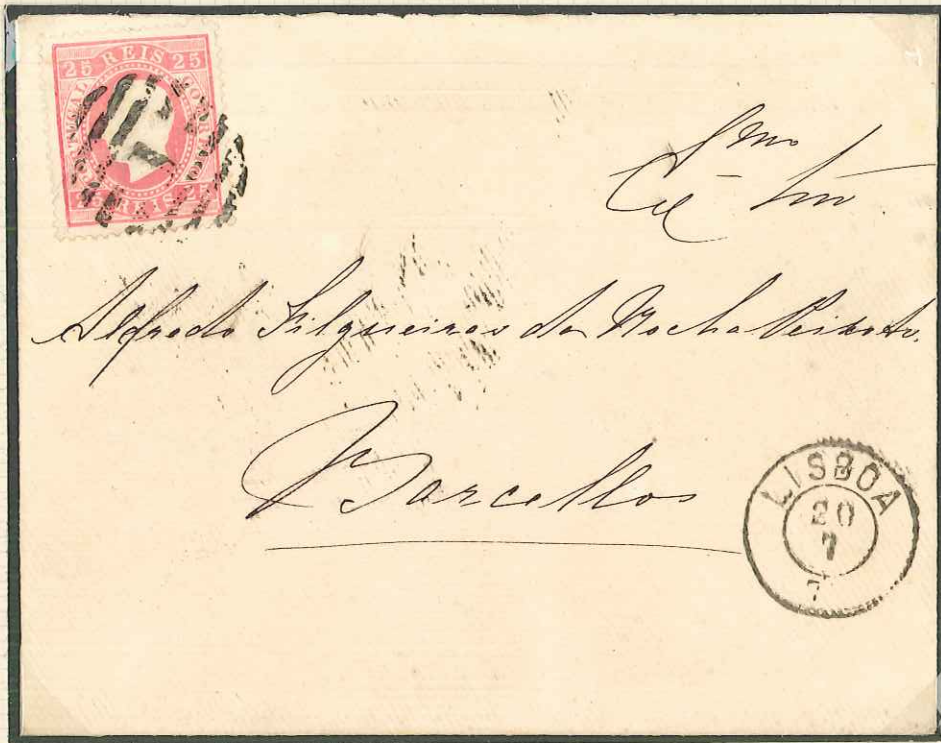 25 REIS 25
PORTUGAL
CORREIO
Exmo Snr
Alfredo Filgueiras da Rocha Peixoto.
Barcellos
LISBOA
20
7
7